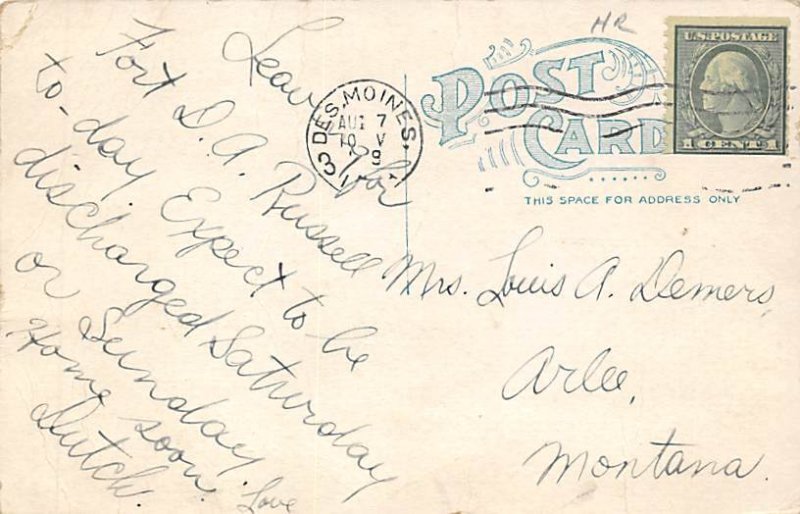 Leav for
Fort D. A. Russell
to-day Expect to be
discharged Saturday
or Sunday.
Home soon.
Love
Dutch.
HR
DES MOINES,
AUG 7
POST
CARD
THIS SPACE FOR ADDRESS ONLY
U.S. POSTAGE
1 CENT 1
Mrs. Louis A. Demers,
Arlee,
Montana.